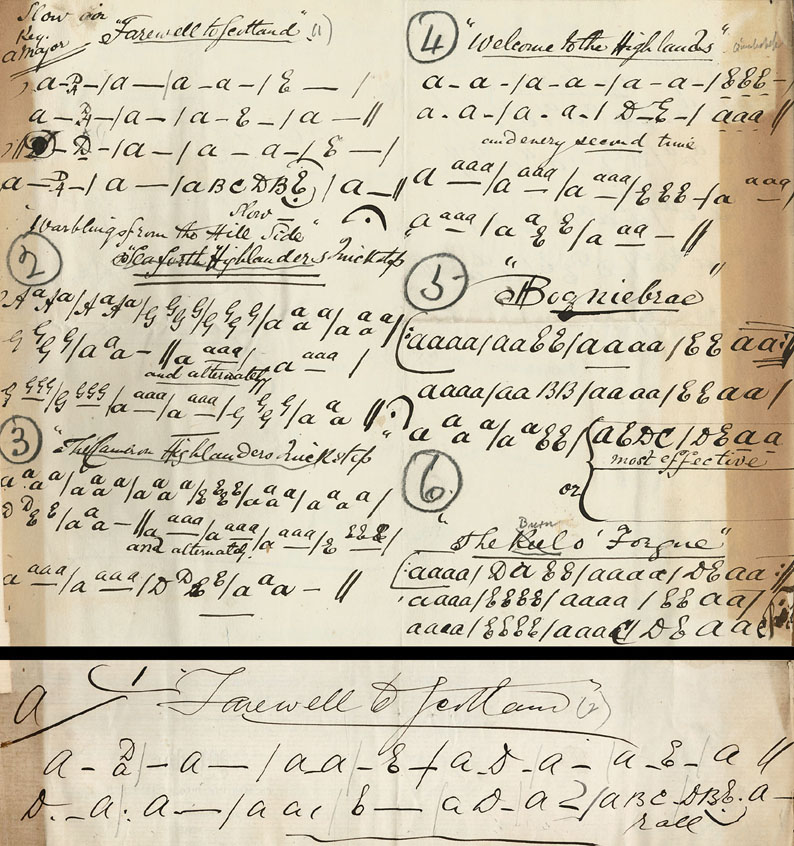 Slow air
Key.
a Major
"Farewell to Scotland" (1)
a - D/A - / a - / a - a - / E - /
a - D/A - / a - E - / a - //
D - D - / a - / a - a - / E - /
a - D/A - / a - / a B C D B E / a - //
Slow -
"Warblings from the Hill Side"
2
"Seaforth Highlanders Quickstep
A a A a / A a A a / G G G G / G G G G / a a a a / a a a a /
G G G G / a a a - // a aaa / a aaa /
and alternately
G GGG / G GGG / a aaa / a aaa / G G G G / a a a //
3
"The Cameron Highlanders Quickstep"
a a a a / a a a a / a a a a / E E E E / a a a a / a a a a /
D D E E / a a a - // a aaa / a aaa / a aaa / E EEE /
and alternately.
a aaa / a aaa / D D E E / a a a - //
4
"Welcome to the Highlands"
a - a - / a - a - / a - a - / E E E - /
a - a - / a - a - / D - E - / a a a //
and every second time
a aaa / a aaa / a aaa / E E E E - / a aaa
a aaa / a a E E / a aa - //
5
"Bogniebrae"
aaaa / aaEE / aaaa / EE aa :/
aaaa / aa BB / aaaa / EE aa /
a a a a / a a E E / a E D C / D E a a
most effective
or
6.
Burn
"The Reel o' Forgue"
aaaa / Da EE / aaaa / DE aa ://
aaaa / EEEE / aaaa / EE aa /
aaaa / EEEE / aaaa / DE aa
a
1 Farewell to Scotland (2)
a - D/a - / - a - / a a - E - / a D - a - / a - E - a //
D. - a. a - / a a / E - / a D - a - / a B C - D B E. a -
rall